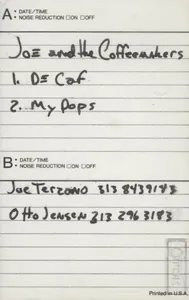 A • DATE/TIME
• NOISE REDUCTION □ ON □ OFF
JOE and the Coffeemakers
1. DE Caf
2. My Pops
B • DATE/TIME
• NOISE REDUCTION □ ON □ OFF
Joe Terzano 313 8439183
Otto Jensen 313 296 3183
Printed in U.S.A.